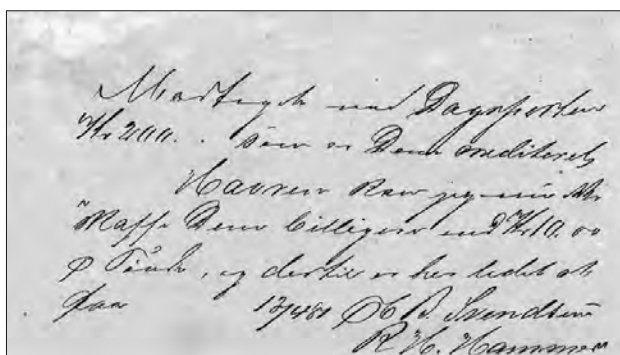 Modtaget med Dagsposten
Kr 200. som er Dem krediteret
Havren kan jeg nu ikke
skaffe Dem billigere end Kr 10.00
p Tönde, og dertil er her lidet at
faa 13/4 81 B. Svendsen
R. H. Hammer